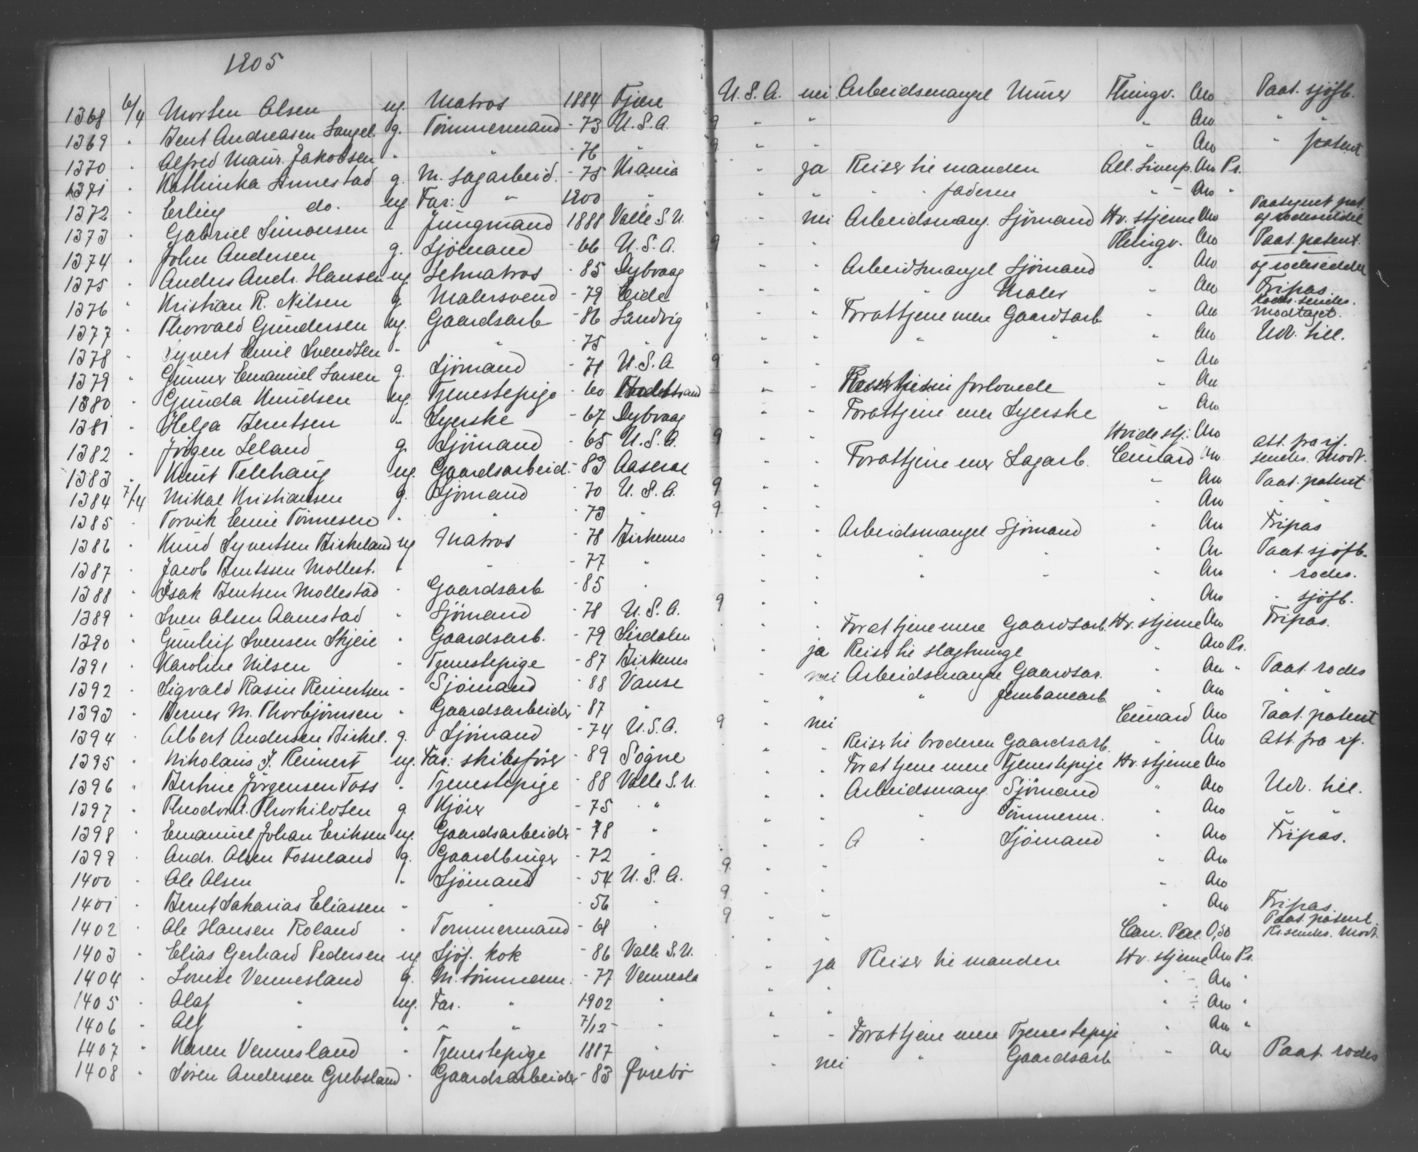 1905
1368 6/4 Morten Olsen ug. Matros 1884 Fjære U.S.A. nei Arbeidsmangel Miner Thingv. Aro Paat. sjøfb.
1369 " Bent Andreasen g. Tømmermand - 73 U.S.A. 9 " " " Aro " "
1370 " Alfred Maur. Jakobsen " " - 76 " 9 " " " Aro " patent
1371 " Kathinka Linnestad g. M. sagarbeid. - 75 " ja Reiser til manden All. Aro Ps.
1372 " Erling do. ug Far: " 1900 " " " " faderen " - Aro "
1373 " Gabriel Simonsen " Jungmand 1888 Valle S.U. " nei Arbeidsmang. Sjømand Hv. stjerne Aro
1374 " John Andersen g. Sjømand - 66 U.S.A. 9 " " Thingv. Aro Paat. patent
1375 " Anders Andr. Hansen ug. Letmatros - 85 Dybvaag " " Arbeidsmangel Sjømand " Aro og rodeseddel
1376 " Kristian R. Nilsen g. Malersvend - 79 Eide " " " Maler " Aro Fripas.
1377 " Thorvald Gundersen ug. Gaardsarb - 86 Landvig " " Forattjene mere Gaardsarb " Aro modtaget.
1378 " Syvert Emil Svendsen " " - 75 " " " " " " Aro Udv. till.
1379 " Gunner Emanuel Larsen g. Sjømand - 71 U.S.A 9 " " " Aro
1380 " Gunda Knudsen ug. Tjenestepige - 60 " " forlovede " Aro
1381 " Helga Berntsen " Syerske - 67 Dybvaag " " Forattjene mer Syerske " Aro
1382 " Jørgen Leland g. Sjømand - 65 U.S.A. 9 " " Hvide stj. Aro
1383 " Knut Telehaug ug. Gaardsarbeid. - 83 Aaseral " " Forattjene mer Sagarb. Cunard Aro sendes. Modt.
1384 7/4 Mikal Kristiansen g. Sjømand - 70 U.S.A. 9 " " " Aro Paat. patent
1385 " Torvik Emil Tønnesen " " - 73 " 9 " " " Aro " "
1386 " Knud Syvertsen Birkeland ug Matros - 78 Birkenes " " Arbeidsmangel Sjømand " Aro Fripas
1387 " Jacob Berntsen Mollest. " " - 77 " " " " " " Aro Paat sjøfb.
1388 " Isak Berntsen Mollestad " Gaardsarb - 85 " " " " " " Aro " rodes.
1389 " Sven Olsen Aamstad " Sjømand - 78 U.S.A. 9 " " " Aro " sjøfb.
1390 " Gunleif Svensen Skjeie " Gaardsarb. - 79 Sirdalen " " For at tjene mere Gaardsarb. Hv. stjerne Aro Fripas.
1391 " Karoline Nilsen " Tjenestepige - 87 Birkenes " ja Reiser til slægtninge " Aro Ps.
1392 " Sigvald Rasin Reinertsen " Sjømand - 88 Vanse " nei Arbeidsmangel Gaardsar. " Aro " Paat rodes
1393 " Berner M. Thorbjørnsen " Gaardsarbeider - 87 " " " " Jernbanearb " Aro " "
1394 " Albert Andersen Birkel. g. Sjømand - 74 U.S.A. 9 " nei Cunard Aro Paat. patent
1395 " Nikolaus J. Reinert ug. Far. skibsfører - 89 Søgne " " Reiser til broderen Gaardsarb. " Aro
1396 " Bertine Jørgensen Foss " Tjenestepige - 88 Valle S.U " " For at tjene mere Tjenestepige Hv. stjerne Aro
1397 " Theodor A. Thorkildsen g Kjører - 75 " " " " Arbeidsmang. Sjømand " Aro Udv. till.
1398 " Emanuel Johan Eriksen ug. Gaardsarbeider - 78 " " " " Tømmerm. " Aro "
1399 " Andr. Olsen Fosseland g. Gaardbruger - 72 " " " Sjømand " Aro Fripas.
1400 " Ole Olsen " Sjømand - 54 U.S.A. 9 " " " Aro
1401 " Bernt Sakarias Eliassen " " - 56 " 9 " " " Aro
1402 " Ole Hansen Roland " Tømmermand - 68 " 9 " " " Aro Fripas.
1403 " Elias Gerhard Pedersen ug Sjøf. kok - 86 Valle S.U. " " Can. Pac 0,50 Paat. patent
1404 " Lovise Vennesland g. M. tømmerm. - 77 Vennesla " ja Reiser til manden Hv. stjerne Aro Ps.
1405 " Olaf " ug. Far. " 1902 " " " " - Aro "
1406 " Alf " " " " 7/12 - " " " " - Aro "
1407 " Karen Vennesland " Tjenestepige 1887 " " " For at tjene mere Tjenestepige " Aro "
1408 " Søren Andersen Grebsland " Gaardsarbeider - 83 Øvrebø " nei " Gaardsarb " Aro Paat. rodes